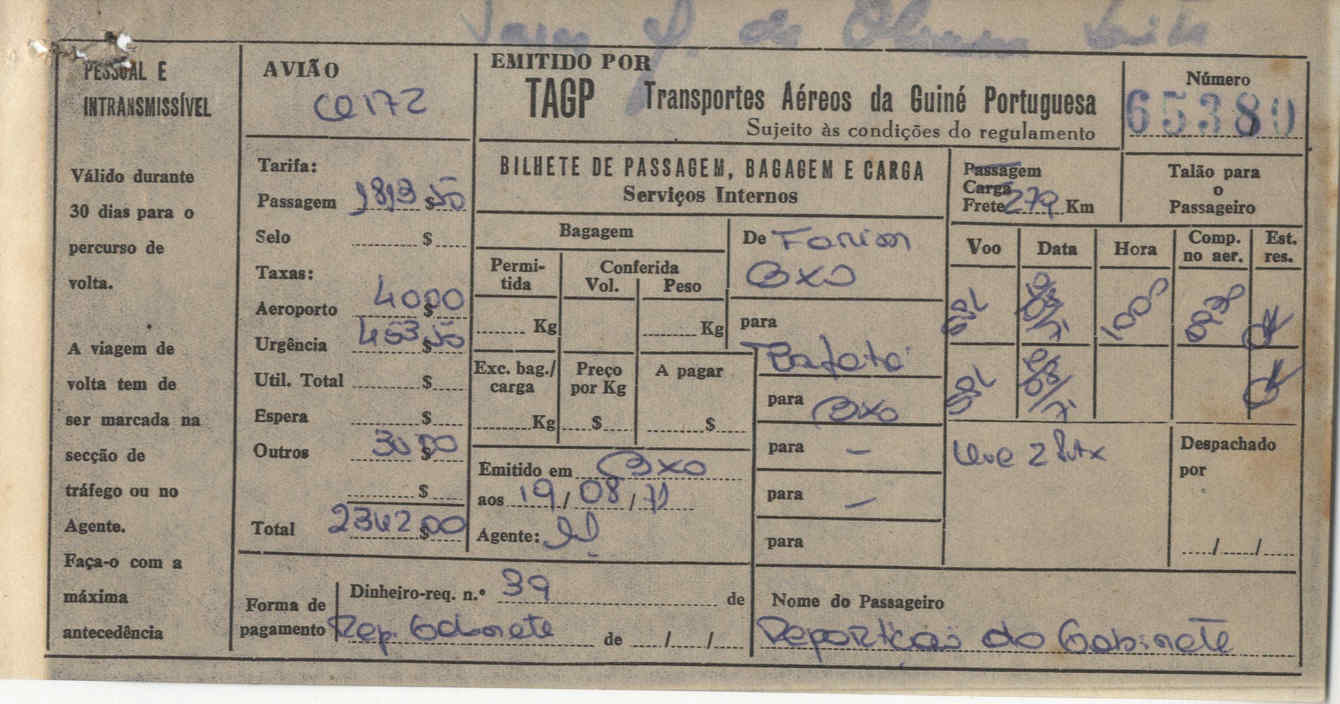 de Oliveira Leite
PESSOAL E
INTRANSMISSÍVEL
Válido durante
30 dias para o
percurso de
volta.
A viagem de
volta tem de
ser marcada na
secção de
tráfego ou no
Agente.
Faça-o com a
máxima
antecedência
AVIÃO
CO172
Tarifa:
Passagem 1813$50
Selo $
Taxas:
Aeroporto 40$00
Urgência 453$50
Util. Total $
Espera $
Outros 30$00
$
Total 2342$00
EMITIDO POR
TAGP Transportes Aéreos da Guiné Portuguesa
Sujeito às condições do regulamento
Número
65380
BILHETE DE PASSAGEM, BAGAGEM E CARGA
Serviços Internos
Passagem
Carga
Frete 279 Km
Talão para
o
Passageiro
Bagagem
Permi-
tida
Conferida
Vol. Peso
Kg Kg
Exc. bag./
carga
Preço
por Kg
A pagar
Kg $ $
Emitido em BXO
aos 19/08/71
Agente:
De Farim
BXO
para
Bafatá
para BXO
para —
para —
para
Voo Data Hora Comp.
no aer. Est.
res.
1000 0930 OK
OK
Leve 2
Despachado
por
/ /
Forma de
pagamento Rep Gabinete
Dinheiro-req. n.º 39 de
de / /
Nome do Passageiro
Repartição do Gabinete